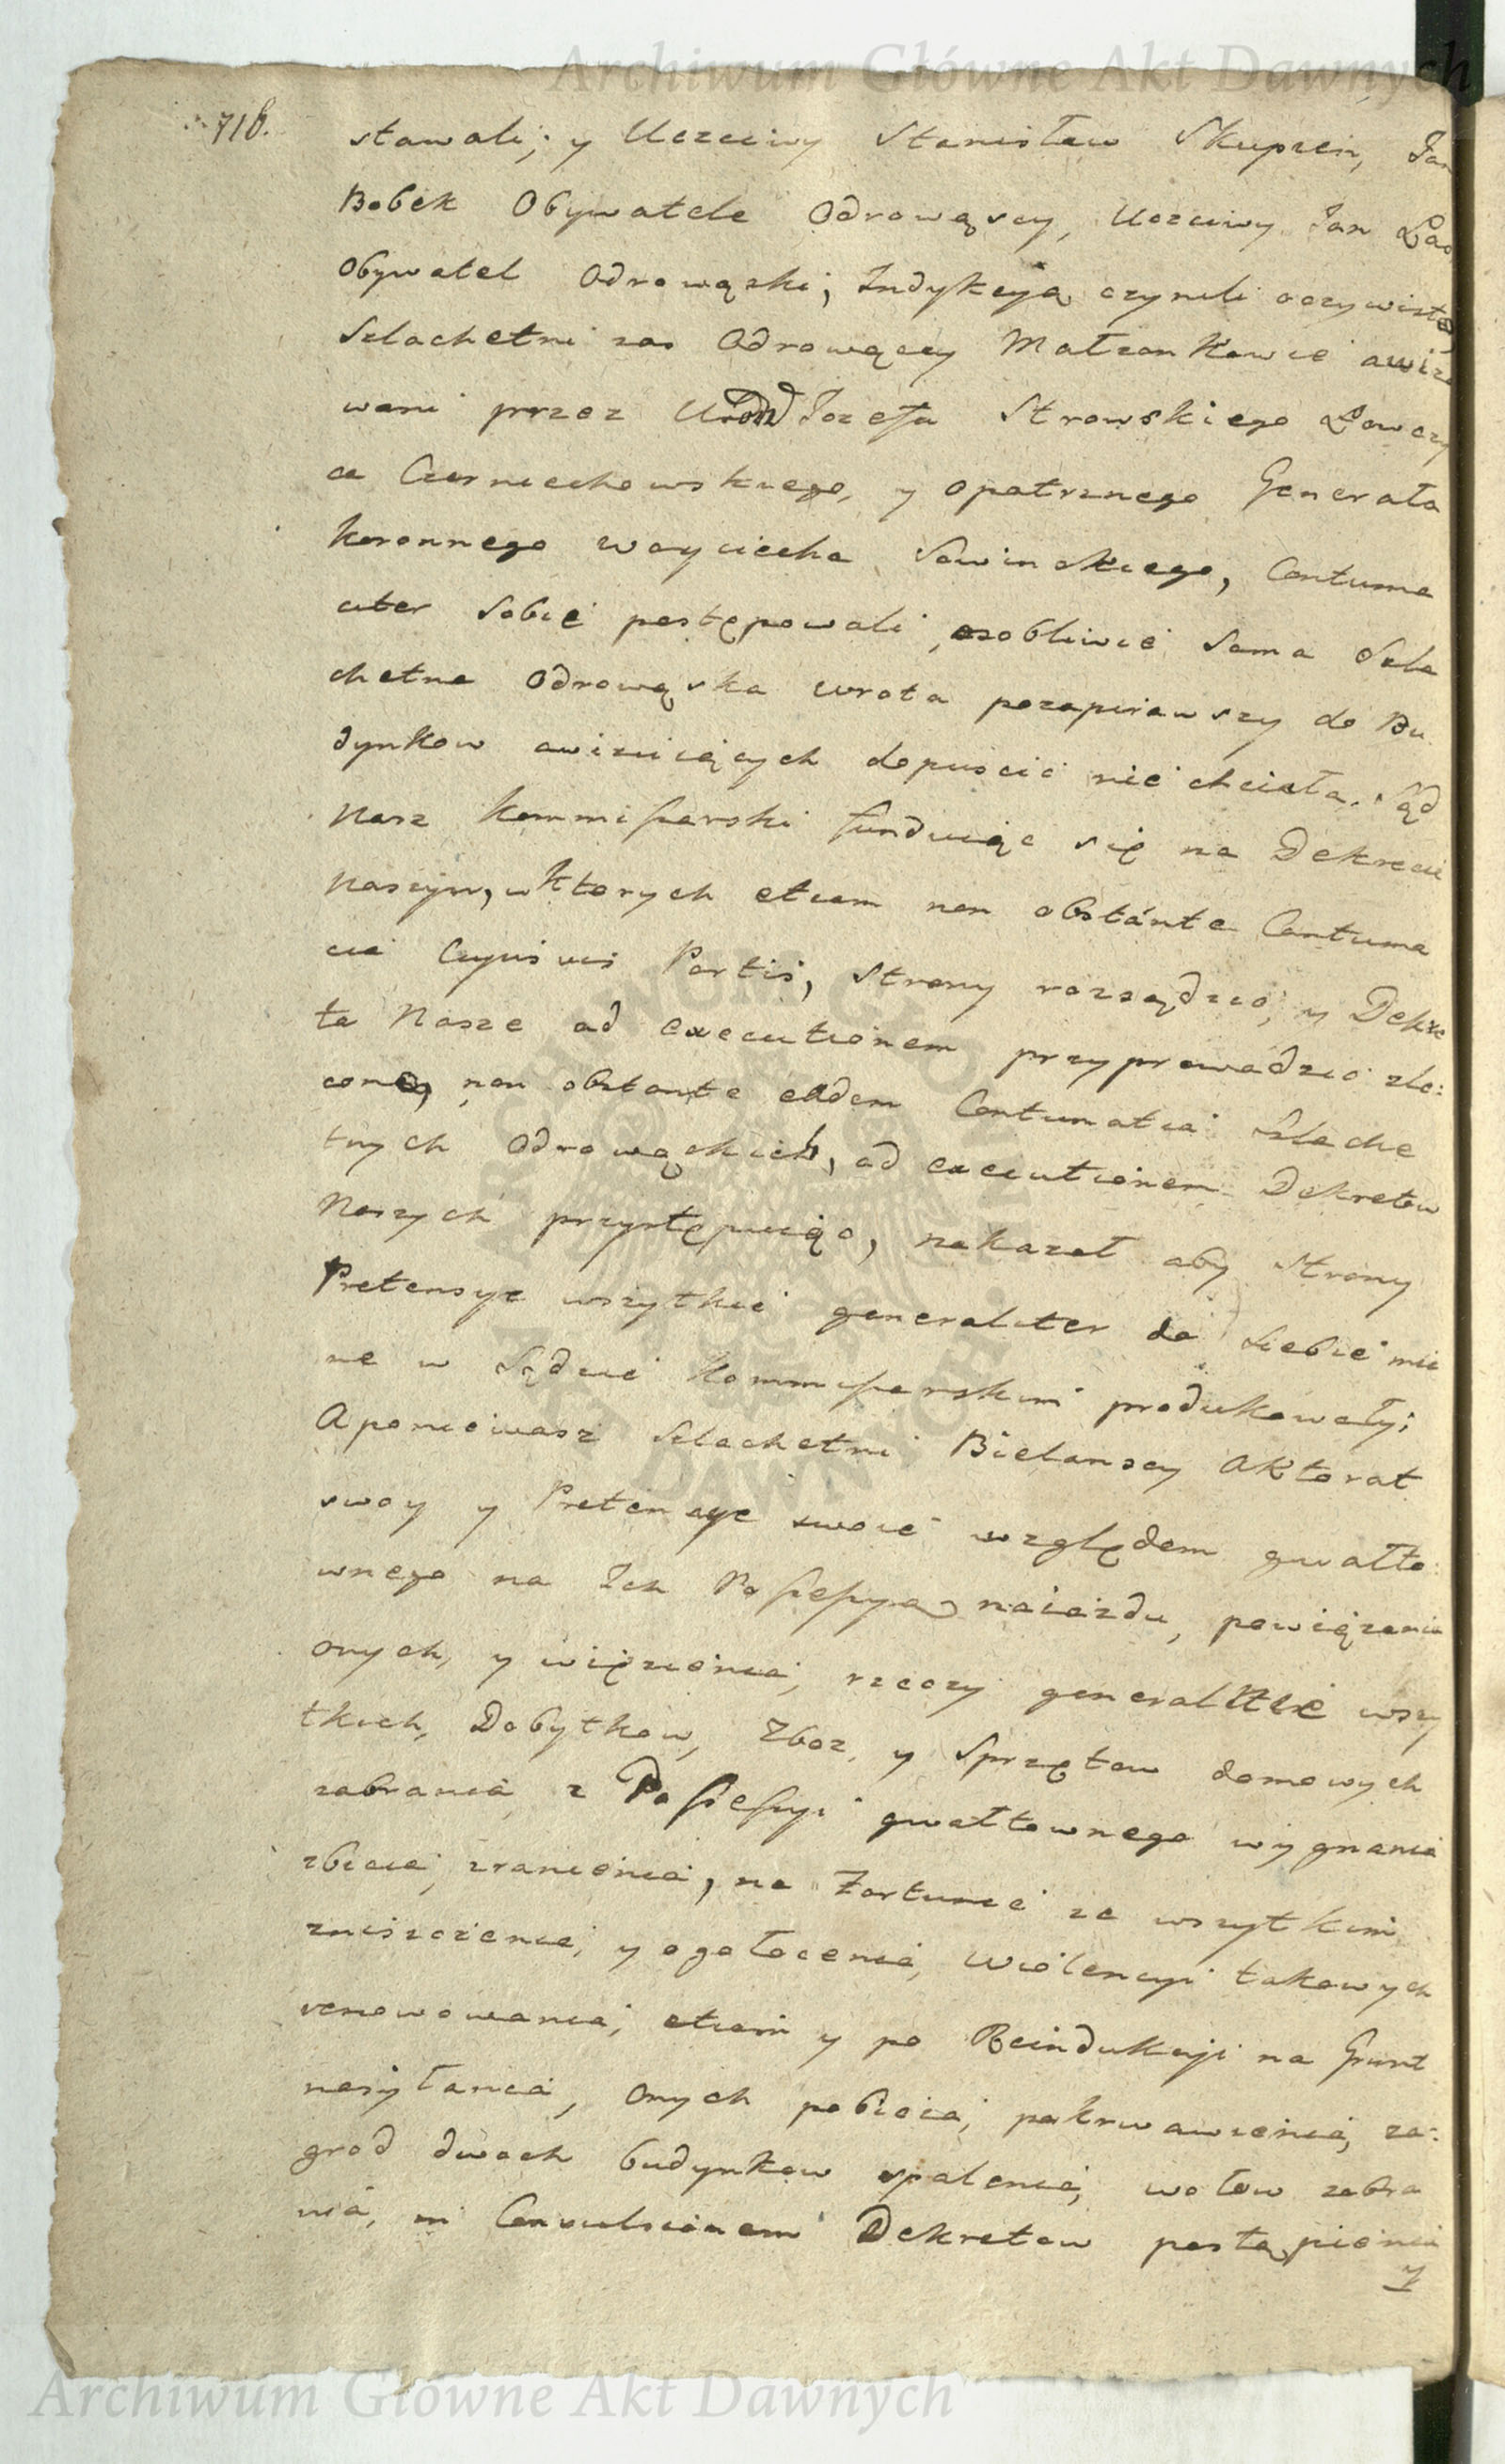 Archiwum Główne Akt Dawnych
718.
stawali; y Uczciwy Stanisław Skupzen, Jan
Bobek Obywatele Odrowąscy, Uczciwy Jan
Obywatel Odrowąski, Indykcyą czynili oczywistą
Szlachetni zas Odrowączy Małzonkowie awizo
wani przez Urod Jozefa Strowskiego Łowczy
ca Czerniechowskiego, y opatrznego Generała
koronnego Woyciecha Sowinskiego, Contuma
citer Sobie postępowali, osobliwie Sama Szla
chetna Odrowąska wrota pozapierawszy do Bu
dynkow awizuiących dopuscić nie chciała. Sąd
Nasz kommissarski funduiąc się na Dekrecie
Naszym, w Ktorych etiam non obstánte Contuma
cia Cujus vis Partis, strony rozsądzic, y Dekre
ta Nasze ad executionem przyprowadzic zle:
cono, non obstante eadem Contumatia Szlache
tnych Odrowąskich, ad executionem Dekretow
Naszych przystępuiąc, nakazał aby Strony
Pretensye wszytkie generaliter do siebie mia
ne w Sądzie Kommissarskim produkowały;
A poniewasz Szlachetni Bielanscy Aktorat
swoy y Pretensye swoie względem gwałto
wnego na Ich Possessyą naiazdu, powiązania
onych, y więzienia, rzeczy generalitie wszy
tkich, Dobytkow, Zboz, y Sprzętow domowych
zabrania, z Possessyi gwałtownego wygnania
zbicia, zranienia, na Fortunie ze wszytkim
zniszczenia, y ogołocenia, Wiolencyi takowych
renowowania, etiam y po Reindukcyi na Grunt
nasyłania, onych pobicia, pokrwawienia, za:
grod dwoch budynkow spalenia, wołow zabra
nia, in Convulsionem Dekretow postąpienia
y
Archiwum Główne Akt Dawnych